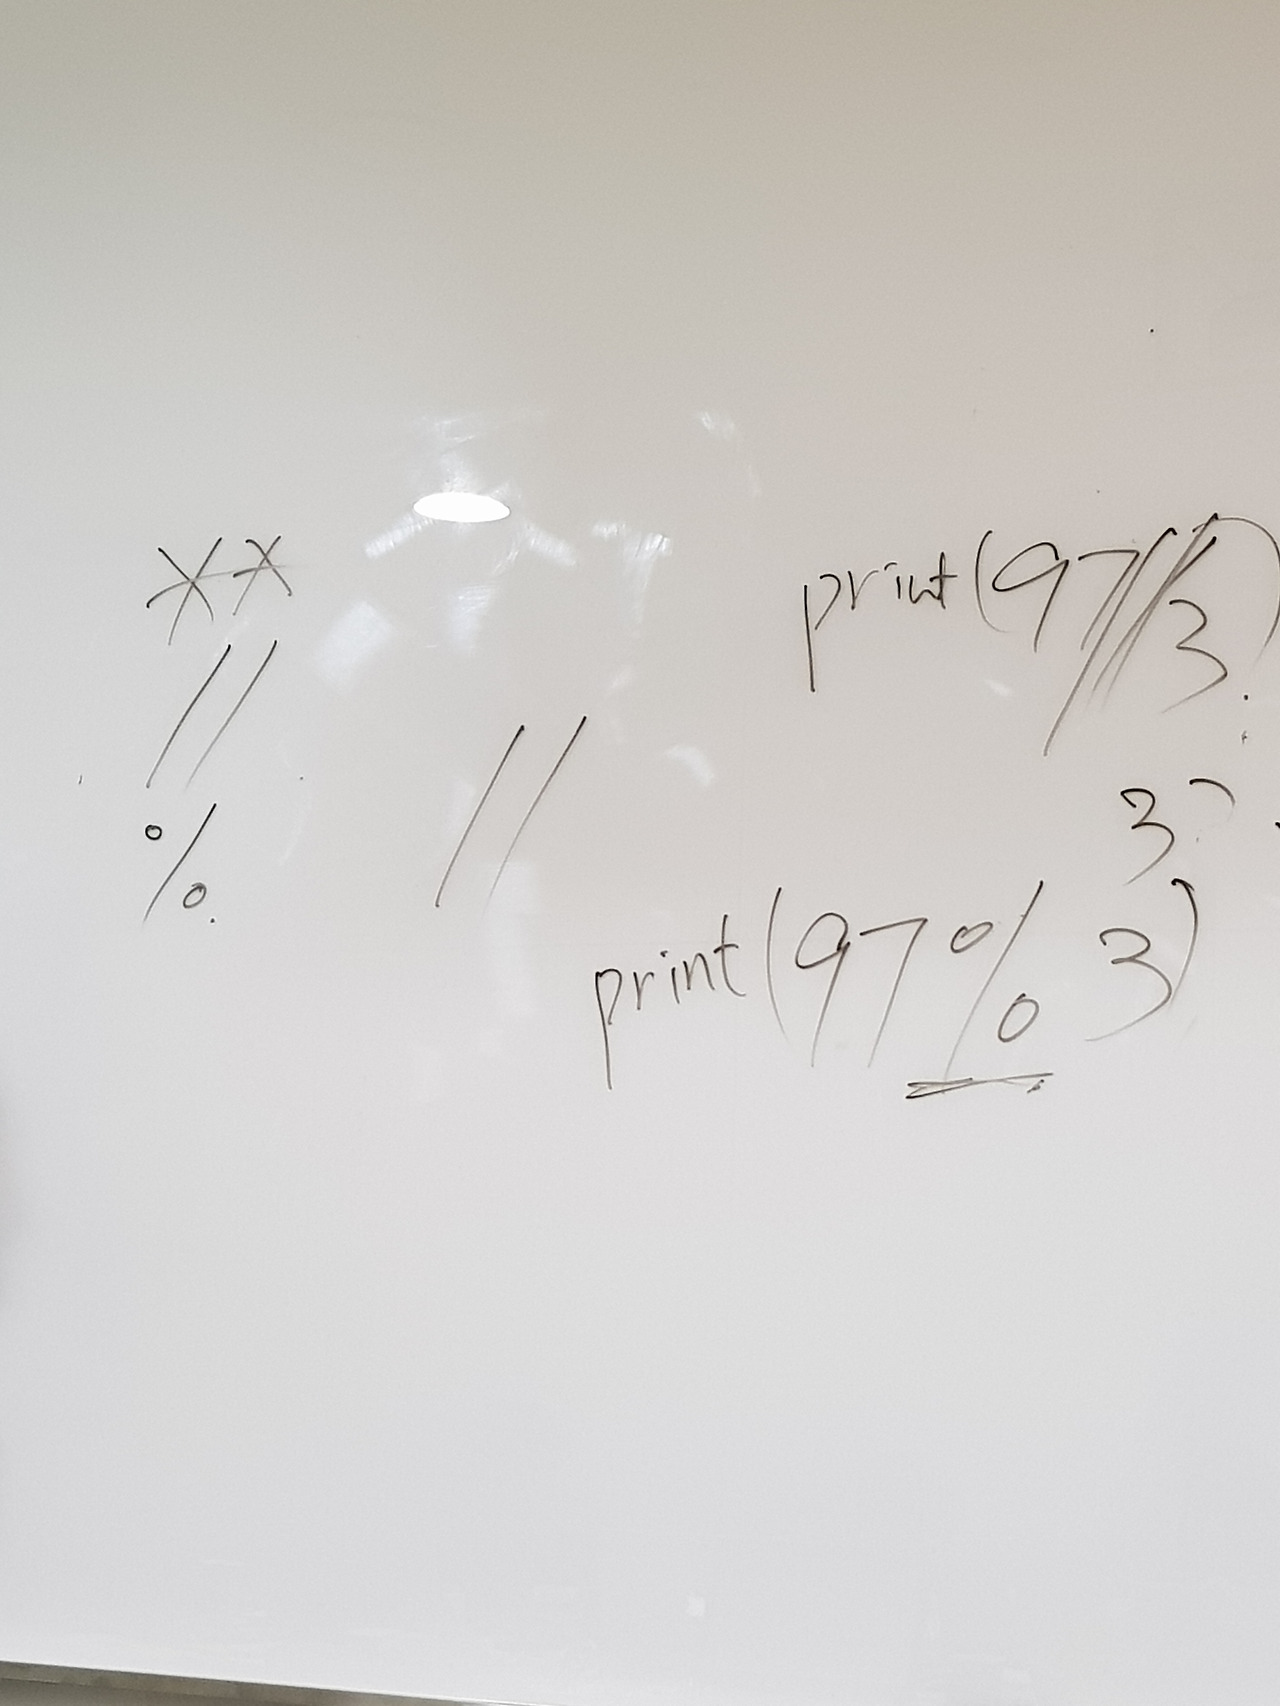 **
//
%
//
print(97//3)
3
print(97%3)